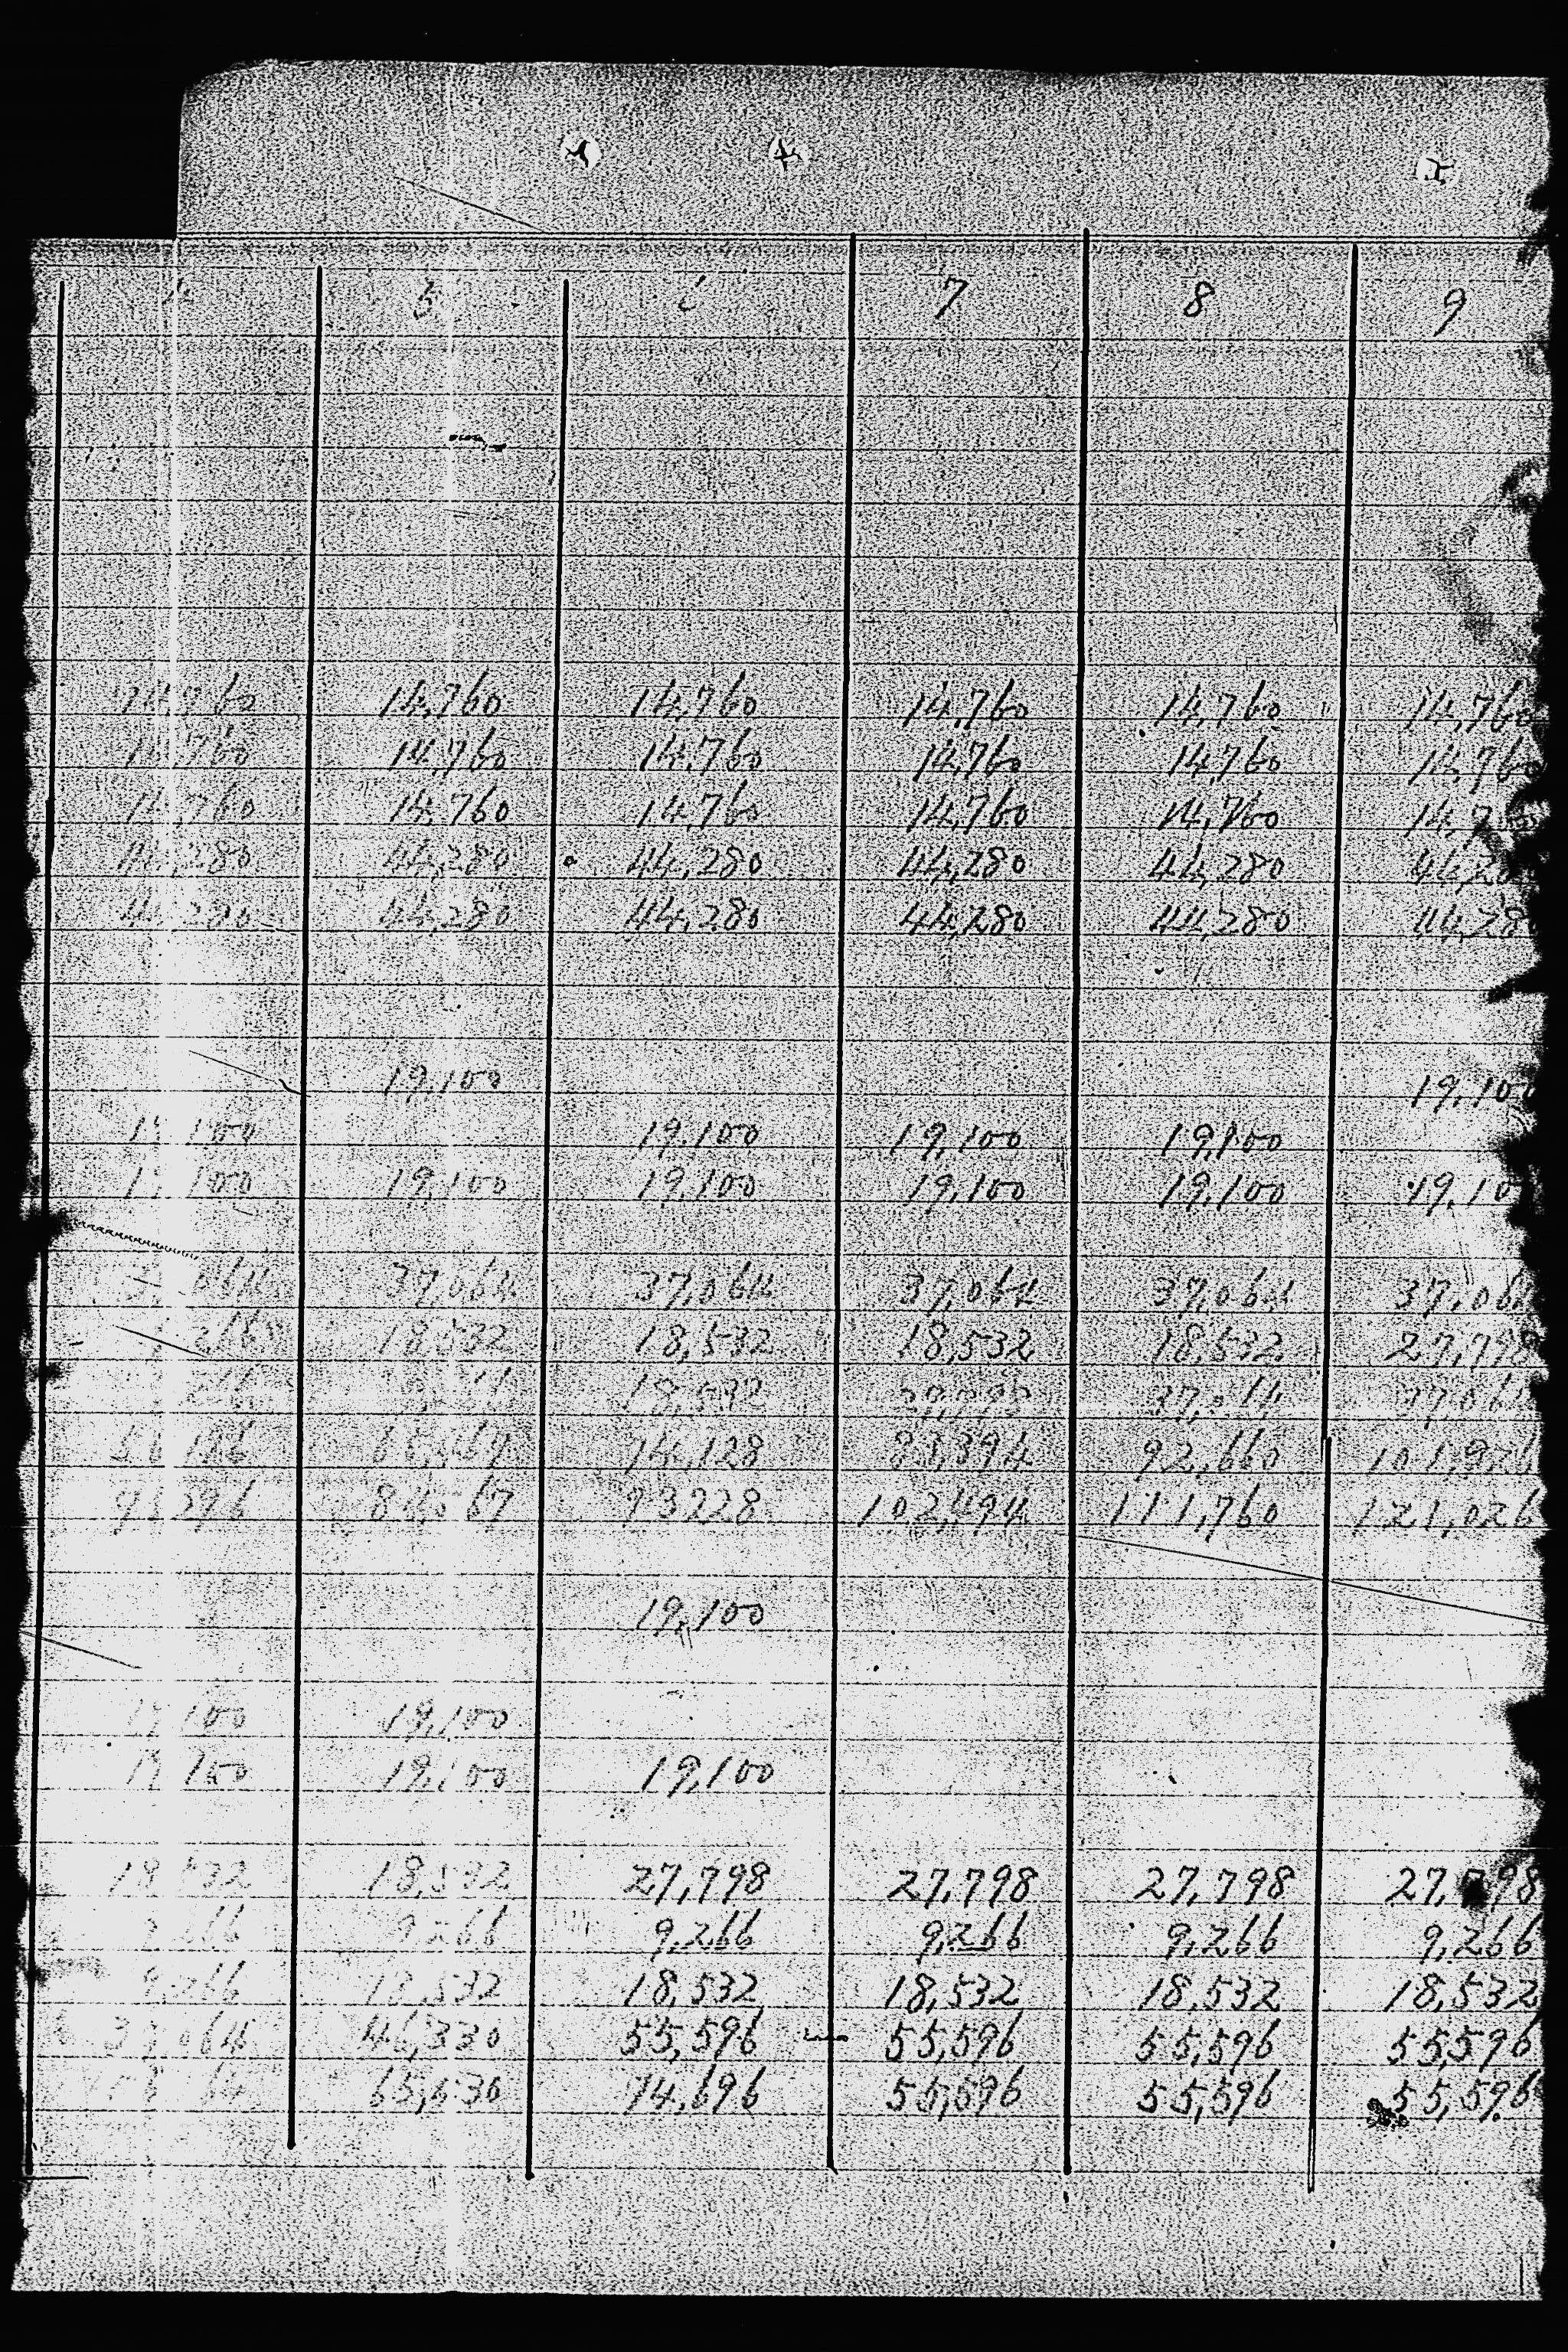 7 8 9
14,760 14,760 14,760 14,760 14,760
14,760 14,760 14,760 14,760 14,760 14,760
14,760 14,760 14,760 14,760 14,760
44,280 44,280 44,280 44,280 44,280
44,280 44,280 44,280 44,280 44,280 44,28
19,100 19,100
19,100 19,100 19,100
19,100 19,100 19,100 19,100 19,10
37,064 37,064 37,064 37,064 37,064
18,532 18,532 18,532 18,532 27,798
18,532
74,128 83,394 92,660
93228 102,494 111,760 121,026
19,100
19,100
19,100 19,100
18,532 27,798 27,798 27,798 27,798
9,266 9,266 9,266 9,266 9,266
9,266 18,532 18,532 18,532 18,532 18,532
37,064 46,330 55,596 55,596 55,596 55,596
74,696 55,596 55,596 55,596